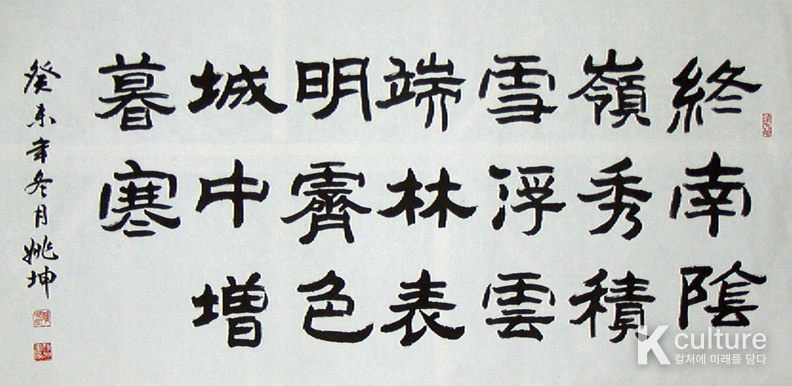 終南陰
嶺秀積
雪浮雲
端林表
明霽色
城中增
暮寒
癸未年冬月姚坤
K culture
컬처에 미래를 담다